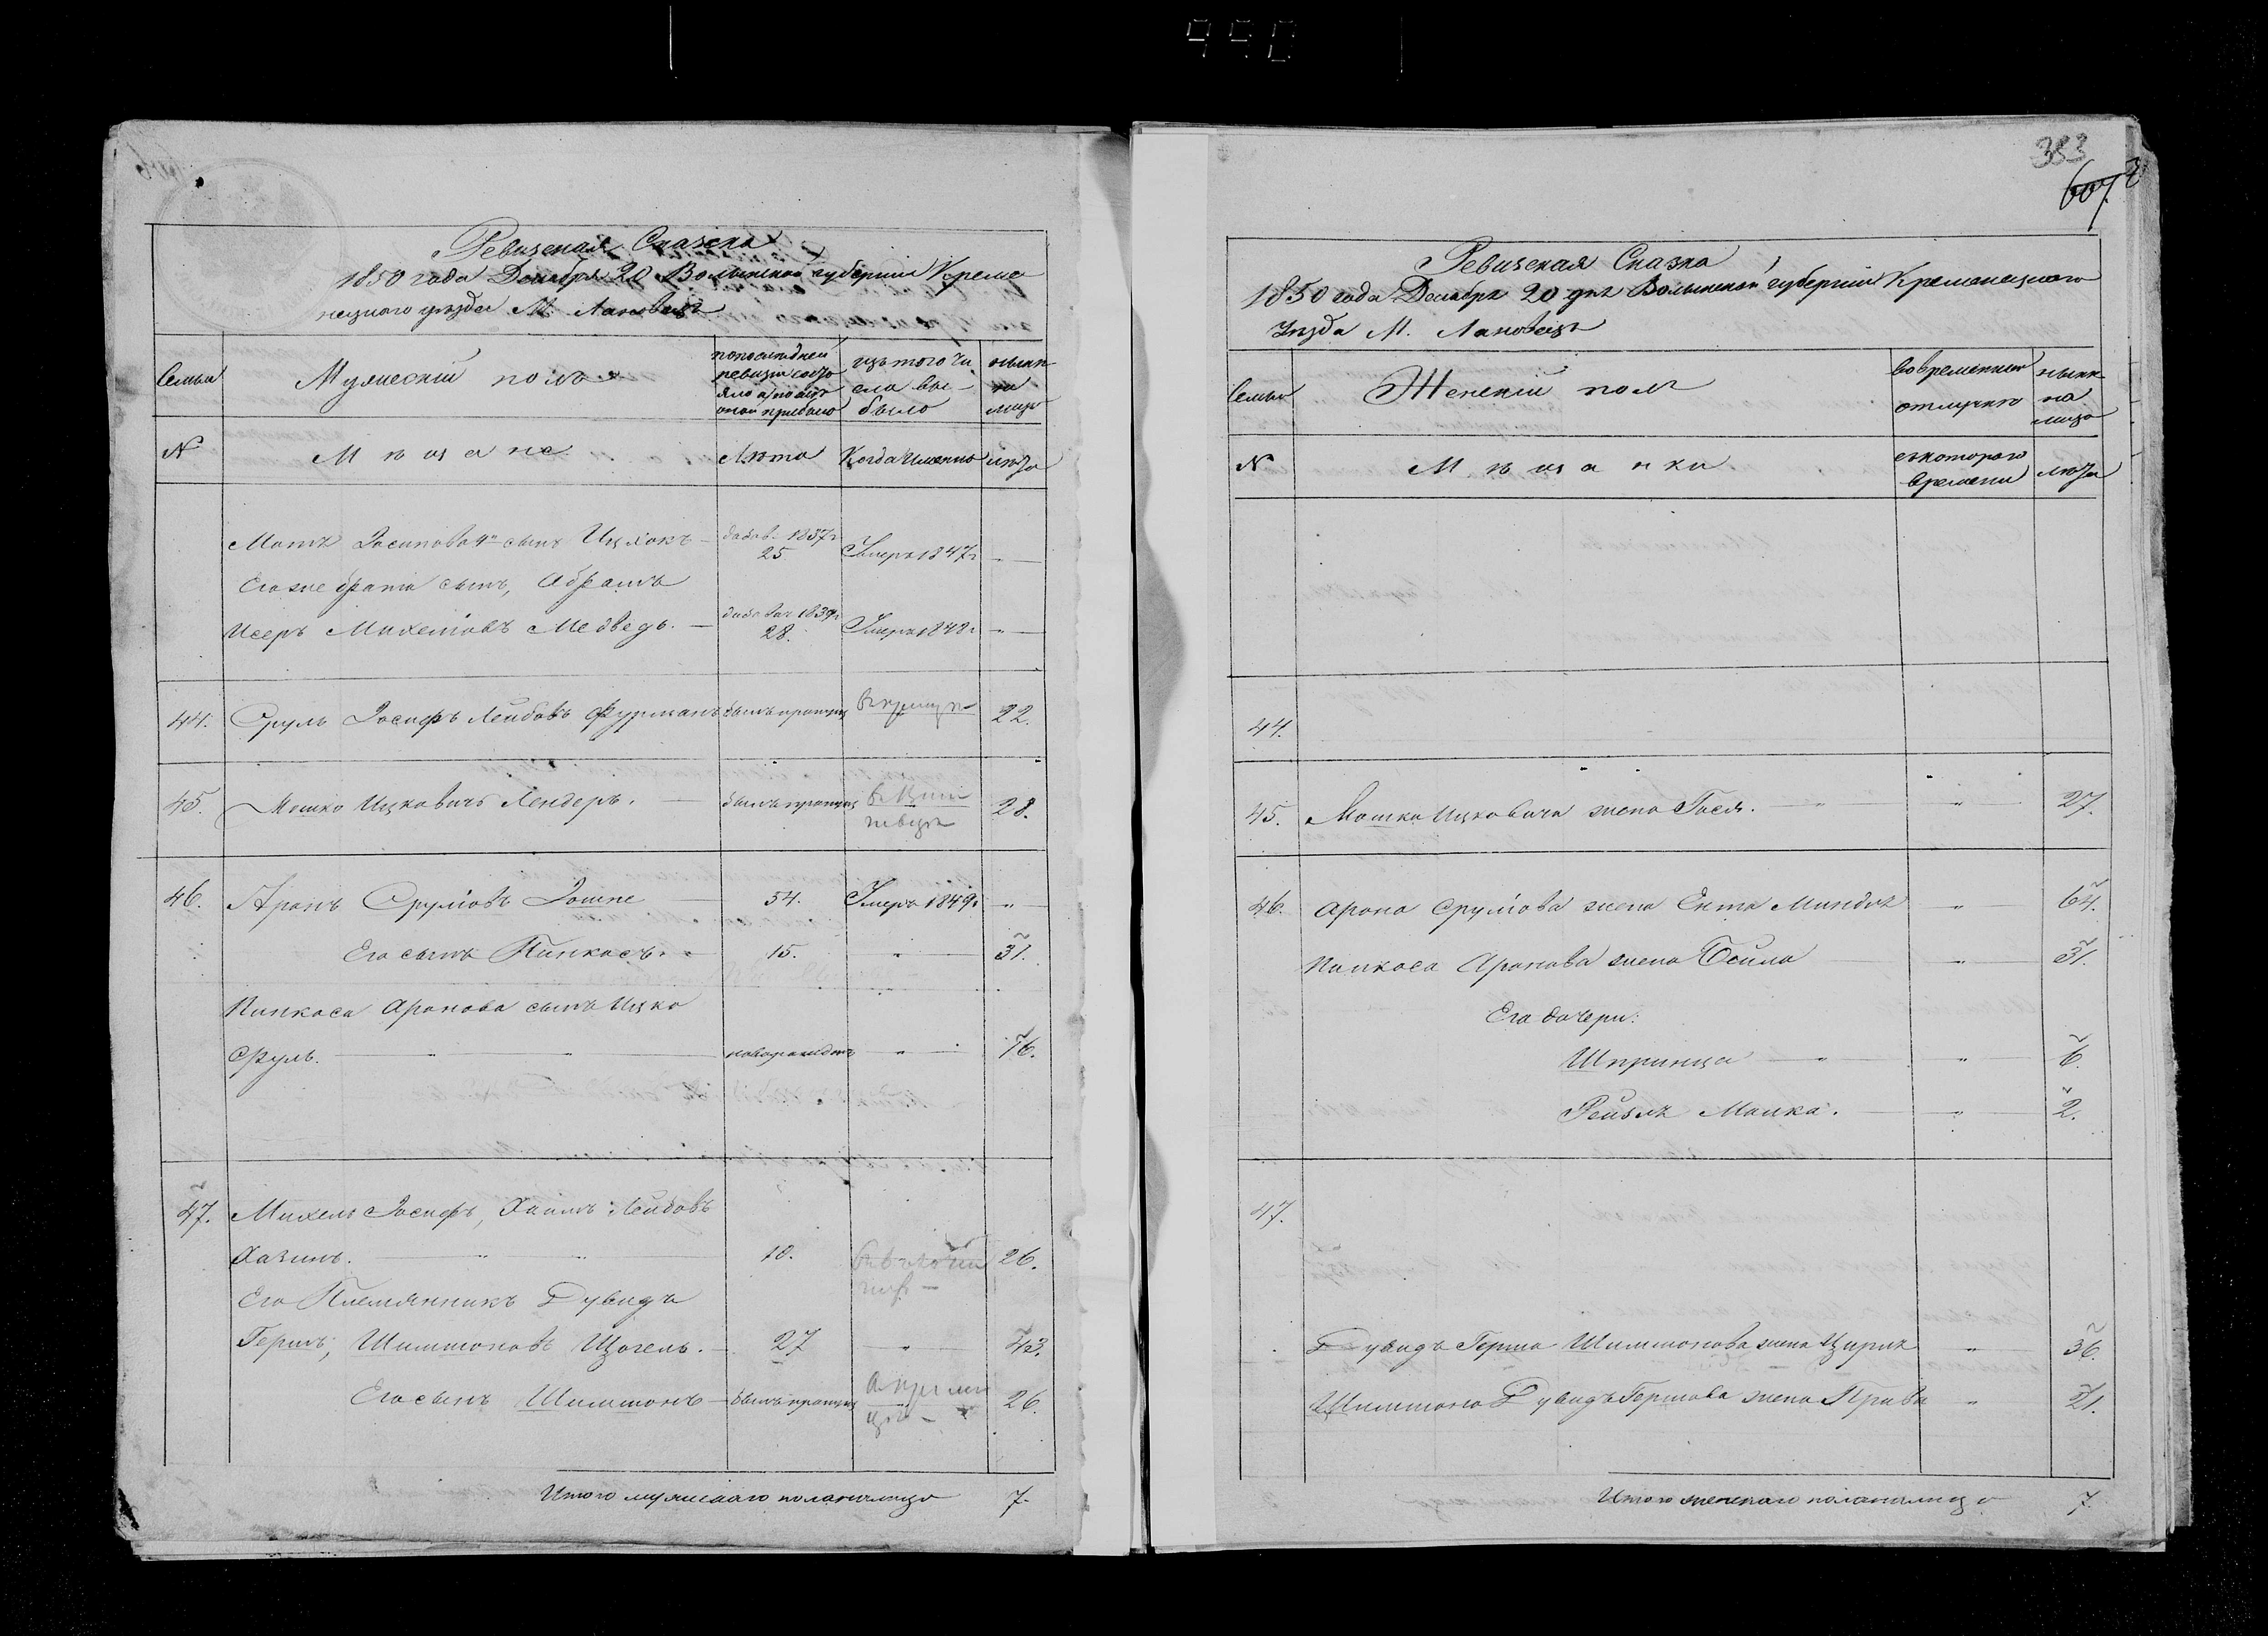 990
Ревизская Сказка
1850 года Декабря 20 Волынской губернии Креме
нецкого уезда М. Лановецъ
Семьи
Мужескій полъ
по последней
ревизіи состо
яло и после
оной прибыло
изъ того чи
сла вы-
было
ныне
на
лицо
№
Мѣщане
Лѣта
Когда именно
лѣта
Мотя Іосиповъ 4й сынъ Ицхокъ
добав. 1837г
25
Умеръ 1847г
Его же брата сынъ, Абрамъ
Исеръ Михелювъ Медведь.
добавоч 1839г
28.
Умеръ 1848г
44.
Сруль Іосифъ Лейбовъ Фурманъ
былъ пропущ
22.
45.
Мошко Ицковичъ Лендеръ.
былъ пропущ
28.
46.
Аронъ Срулювъ
54.
Умеръ 1849г
Его сынъ Пинкасъ.
15.
31.
Пинкаса Аронова сынъ Ицко
Сруль.
новорожденъ
16.
47.
Михель Іосифъ, Хаимъ Лейбовъ
Хазинъ.
10.
26.
Его Племянникъ Дувидъ
Гершъ, Шиммоновъ Щогель.
27
43.
Его сынъ Шиммонъ
былъ пропущ
26.
Итого мужескаго пола налицо
7.
383
607
Ревизская Сказка
1850 года Декабря 20 дня Волынской губерніи Кременецкого
Уезда М. Лановецъ
Семьи
Женскій полъ
во временной
отлучке
ныне
на
лицо
№
Мѣщанки
съ котораго
времени
лѣта
44.
45.
Мошка Ицковича жена Гася.
27.
46.
Арона Срулюва жена Ента Миндля
64.
Пинкаса Аронова жена Бейла
31.
Его дочери:
Шпринца
6.
Рейзля Малка.
2.
47.
Дувидъ Герша Шиммонова жена Цирля
36.
Шиммона Дувидъ Гершова жена Прива
21.
Итого женскаго пола налицо
7.